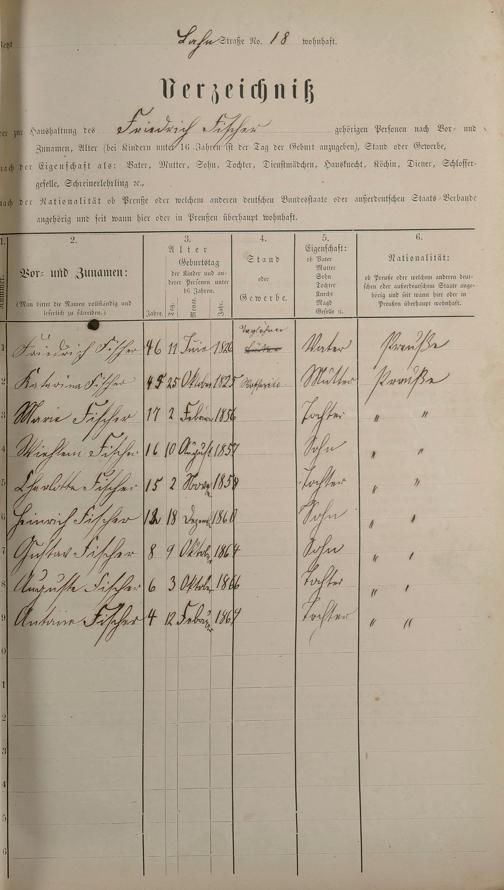 Jetzt Lahn Straße No. 18 wohnhaft.
Verzeichniß
der zur Haushaltung des Friedrich Fischer gehörigen Personen nach Vor- und
Zunamen, Alter (bei Kindern unter 16 Jahren ist der Tag der Geburt anzugeben), Stand oder Gewerbe,
nach der Eigenschaft als: Vater, Mutter, Sohn, Tochter, Dienstmädchen, Hausknecht, Köchin, Diener, Schlosser-
geselle, Schreinerlehrling ꝛc.,
nach der Nationalität ob Preuße oder welchem anderen deutschen Bundesstaate oder außerdeutschen Staats-Verbande
angehörig und seit wann hier oder in Preußen überhaupt wohnhaft.
1. 2. 3. 4. 5. 6.
Nummer.
Vor- und Zunamen:
(Man bittet die Namen vollständig und
leserlich zu schreiben.)
Alter
Geburtstag
der Kinder und an-
derer Personen unter
16 Jahren.
Jahre. Tag. Monat. Jahr.
Stand
oder
Gewerbe.
Eigenschaft:
ob Vater
Mutter
Sohn
Tochter
Knecht
Magd
Geselle ꝛc.
Nationalität:
ob Preuße oder welchem andern deut-
schen oder außerdeutschen Staate ange-
hörig und seit wann hier oder in
Preußen überhaupt wohnhaft.
1 Friedrich Fischer 46 11 1826 Vater Preuße
2 Katarina Fischer 45 25 Oktober 1825 Mutter Preuße
3 Marie Fischer 17 2 Febru 1856 Tochter " "
4 Wielhlem Fischer 16 10 August 1857 Sohn " "
5 Charlotte Fischer 15 2 Novem 1858 Tochter " "
6 Heinrich Fischer 18 Dezem Sohn " "
7 Gustav Fischer 8 9 Oktober 1864 Sohn " "
8 Auguste Fischer 6 3 Oktober 1866 Tochter " "
9 Fischer 4 12 Febru Tochter " "
0
1
2
3
4
5
6